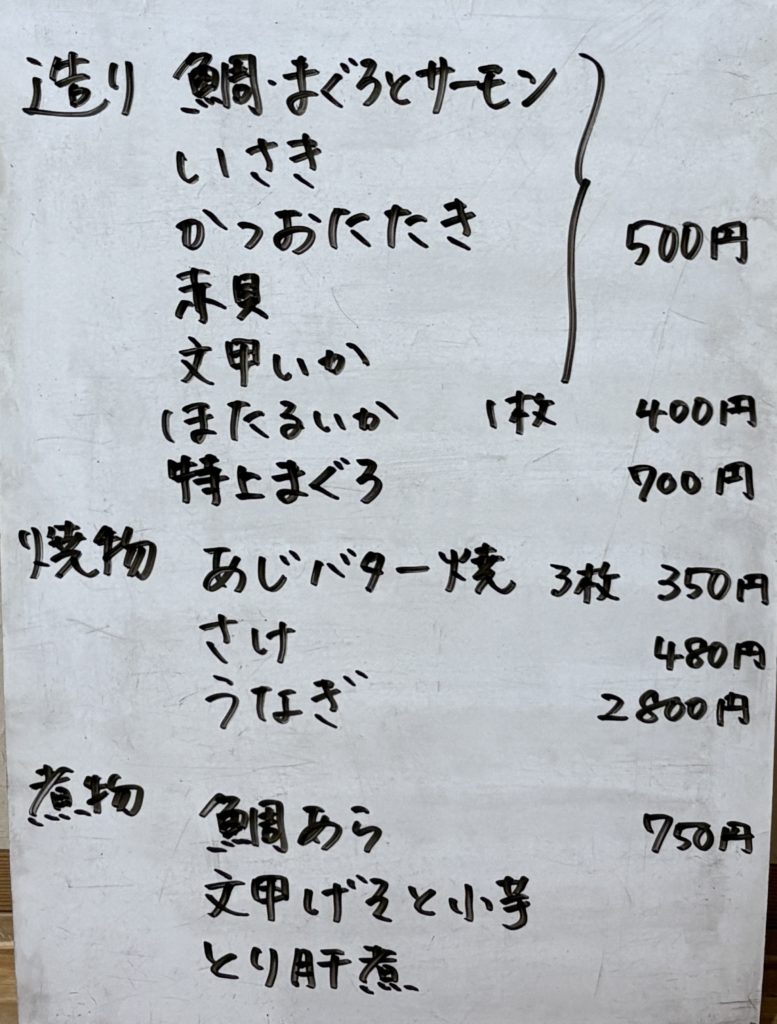 造り 鯛・まぐろとサーモン
いさき
かつおたたき
500円
赤貝
文甲いか
ほたるいか 1枚 400円
特上まぐろ 700円
焼物 あじバター焼 3枚 350円
さけ 480円
うなぎ 2800円
煮物
鯛あら 750円
文甲げそと小芋
とり肝煮